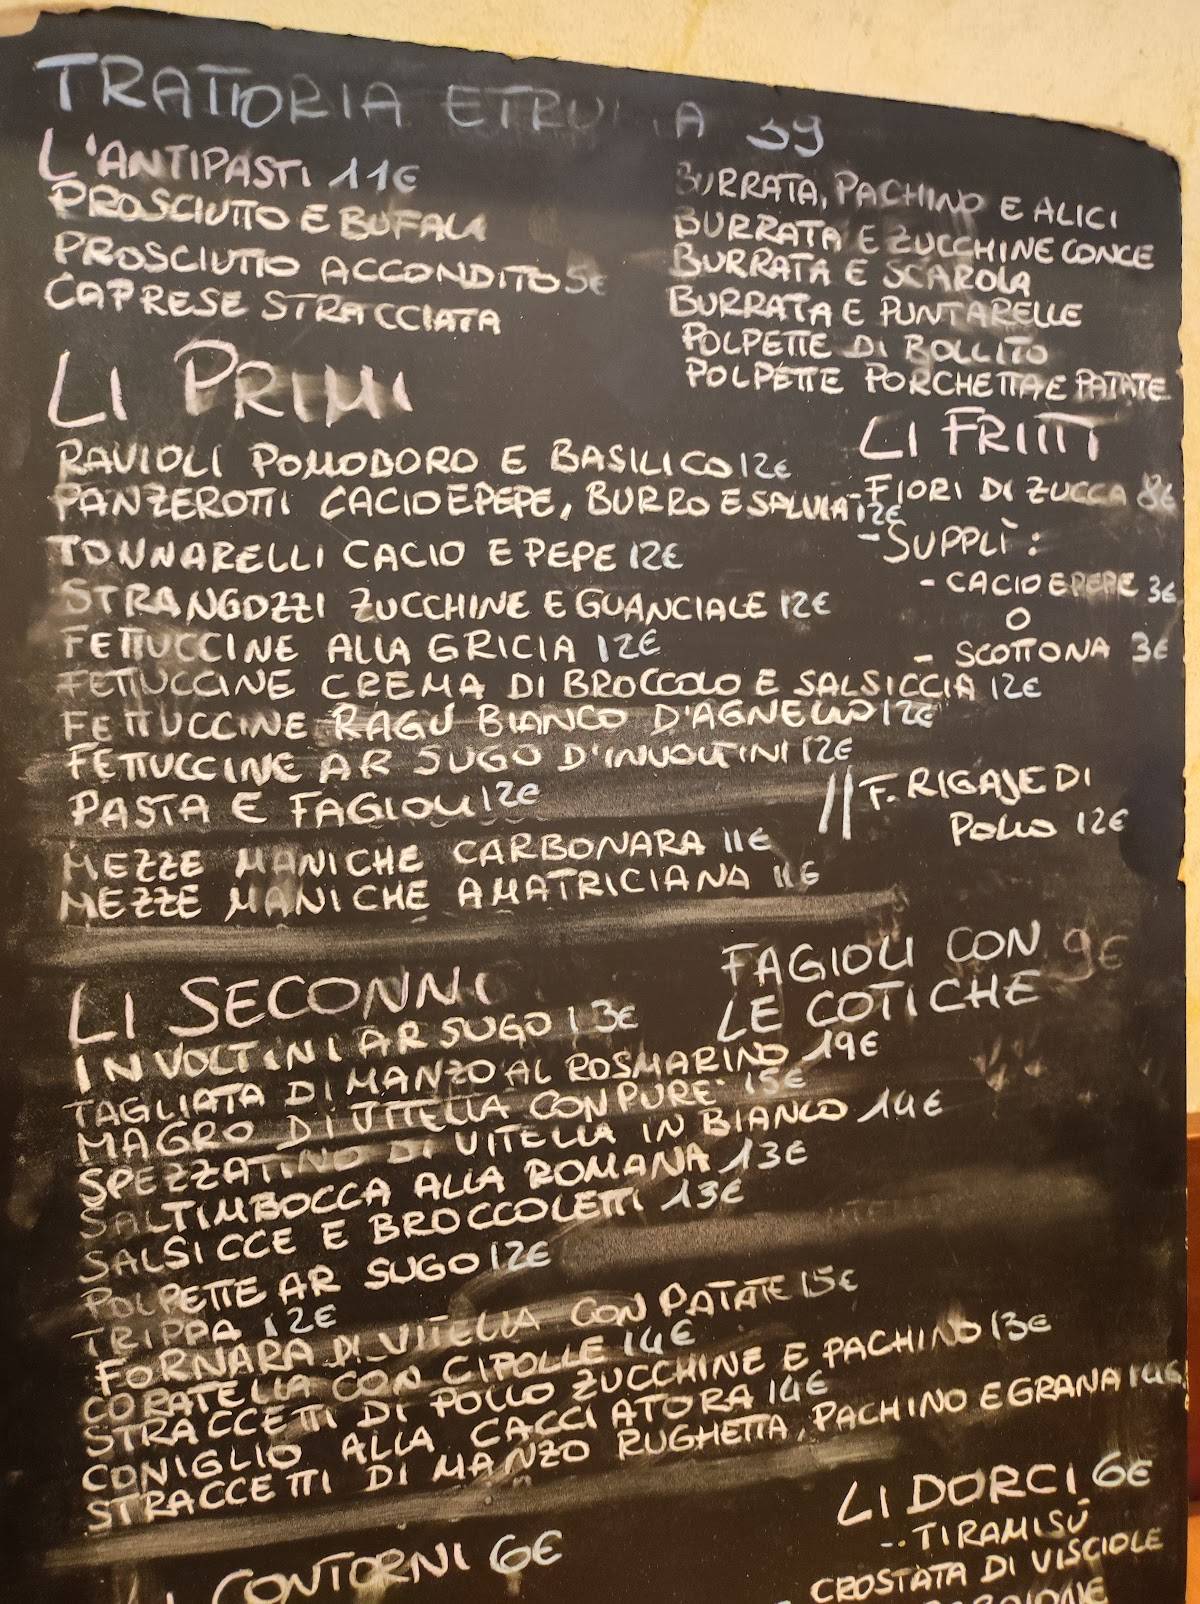 TRATTORIA ETRURIA 39
L'ANTIPASTI 11€
PROSCIUTTO E BUFALA
PROSCIUTTO ACCONDITO 5€
CAPRESE STRACCIATA
BURRATA, PACHINO E ALICI
BURRATA E ZUCCHINE CONCE
BURRATA E SCAROLA
BURRATA E PUNTARELLE
POLPETTE DI BOLLITO
POLPETTE PORCHETTA E PATATE
LI PRIMI
RAVIOLI POMODORO E BASILICO 12€
PANZEROTTI CACIO E PEPE, BURRO E SALVIA 12€
TONNARELLI CACIO E PEPE 12€
STRANGOZZI ZUCCHINE E GUANCIALE 12€
FETTUCCINE ALLA GRICIA 12€
FETTUCCINE CREMA DI BROCCOLO E SALSICCIA 12€
FETTUCCINE RAGÚ BIANCO D'AGNELLO 12€
FETTUCCINE AR SUGO D'INVOLTINI 12€
PASTA E FAGIOLI 12€
MEZZE MANICHE CARBONARA 11€
MEZZE MANICHE AMATRICIANA 11€
LI FRITTI
- FIORI DI ZUCCA 8€
- SUPPLÌ :
- CACIO E PEPE 3€
O
- SCOTTONA 3€
// F. RIGATE DI
POLLO 12€
LI SECONNI
INVOLTINI AR SUGO 13€
TAGLIATA DI MANZO AL ROSMARINO 19€
MAGRO DI VITELLA CON PURE' 15€
SPEZZATINO DI VITELLA IN BIANCO 14€
SALTIMBOCCA ALLA ROMANA 13€
SALSICCE E BROCCOLETTI 13€
POLPETTE AR SUGO 12€
TRIPPA 12€
FORNARA DI VITELLA CON PATATE 15€
CORATELLA CON CIPOLLE 14€
STRACCETTI DI POLLO ZUCCHINE E PACHINO 13€
CONIGLIO ALLA CACCIATORA 14€
STRACCETTI DI MANZO RUGHETTA, PACHINO E GRANA 14€
FAGIOLI CON 9€
LE COTICHE
CONTORNI 6€
LI DORCI 6€
- TIRAMISÚ
CROSTATA DI VISCIOLE